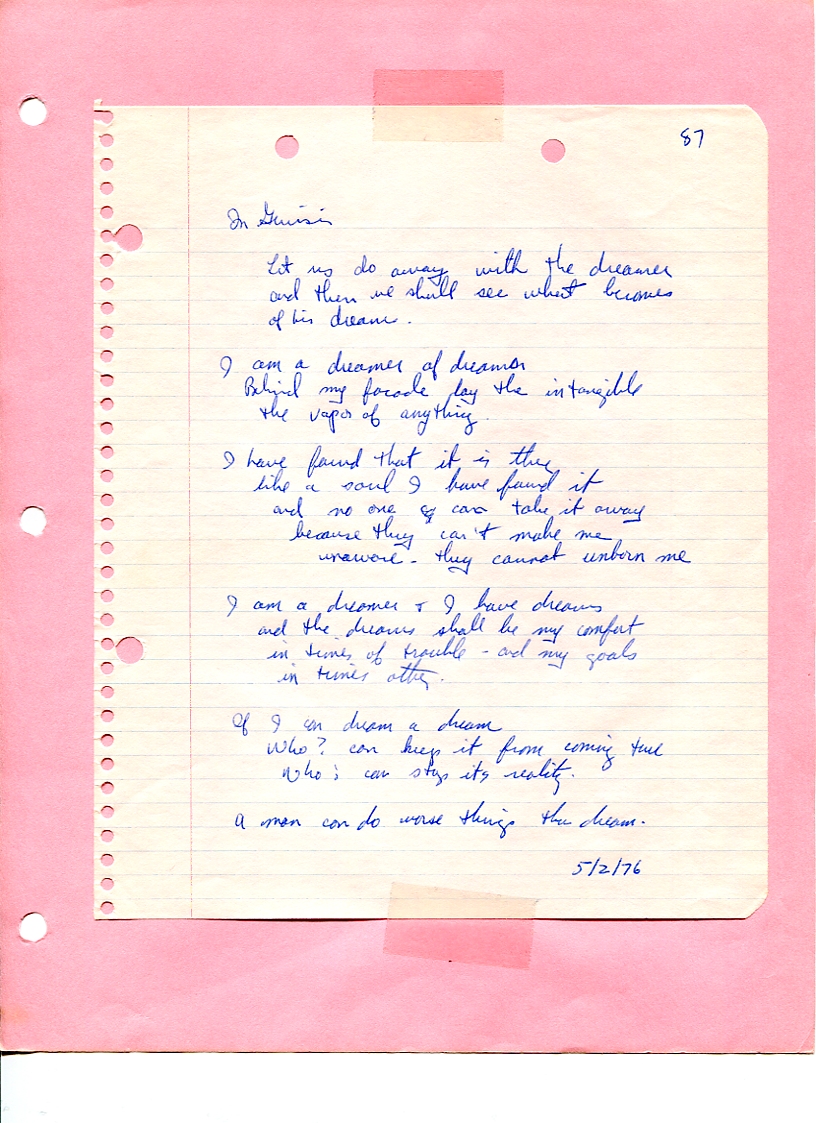 87
In Genisis
Let us do away with the dreamer
and then we shall see what becomes
of his dream.
I am a dreamer of dreams
Behind my facade lay the intangible
the vapor of anything.
I have found that it is
like a soul I have found it
and no one can take it away
because they can't make me
unaware - they cannot unborn me
I am a dreamer + I have dreams
and the dreams shall be my comfort
in times of trouble - and my goals
in times other.
If I can dream a dream
Who? can keep it from coming true
Who; can stop its reality.
A man can do worse things than dream.
5/2/76